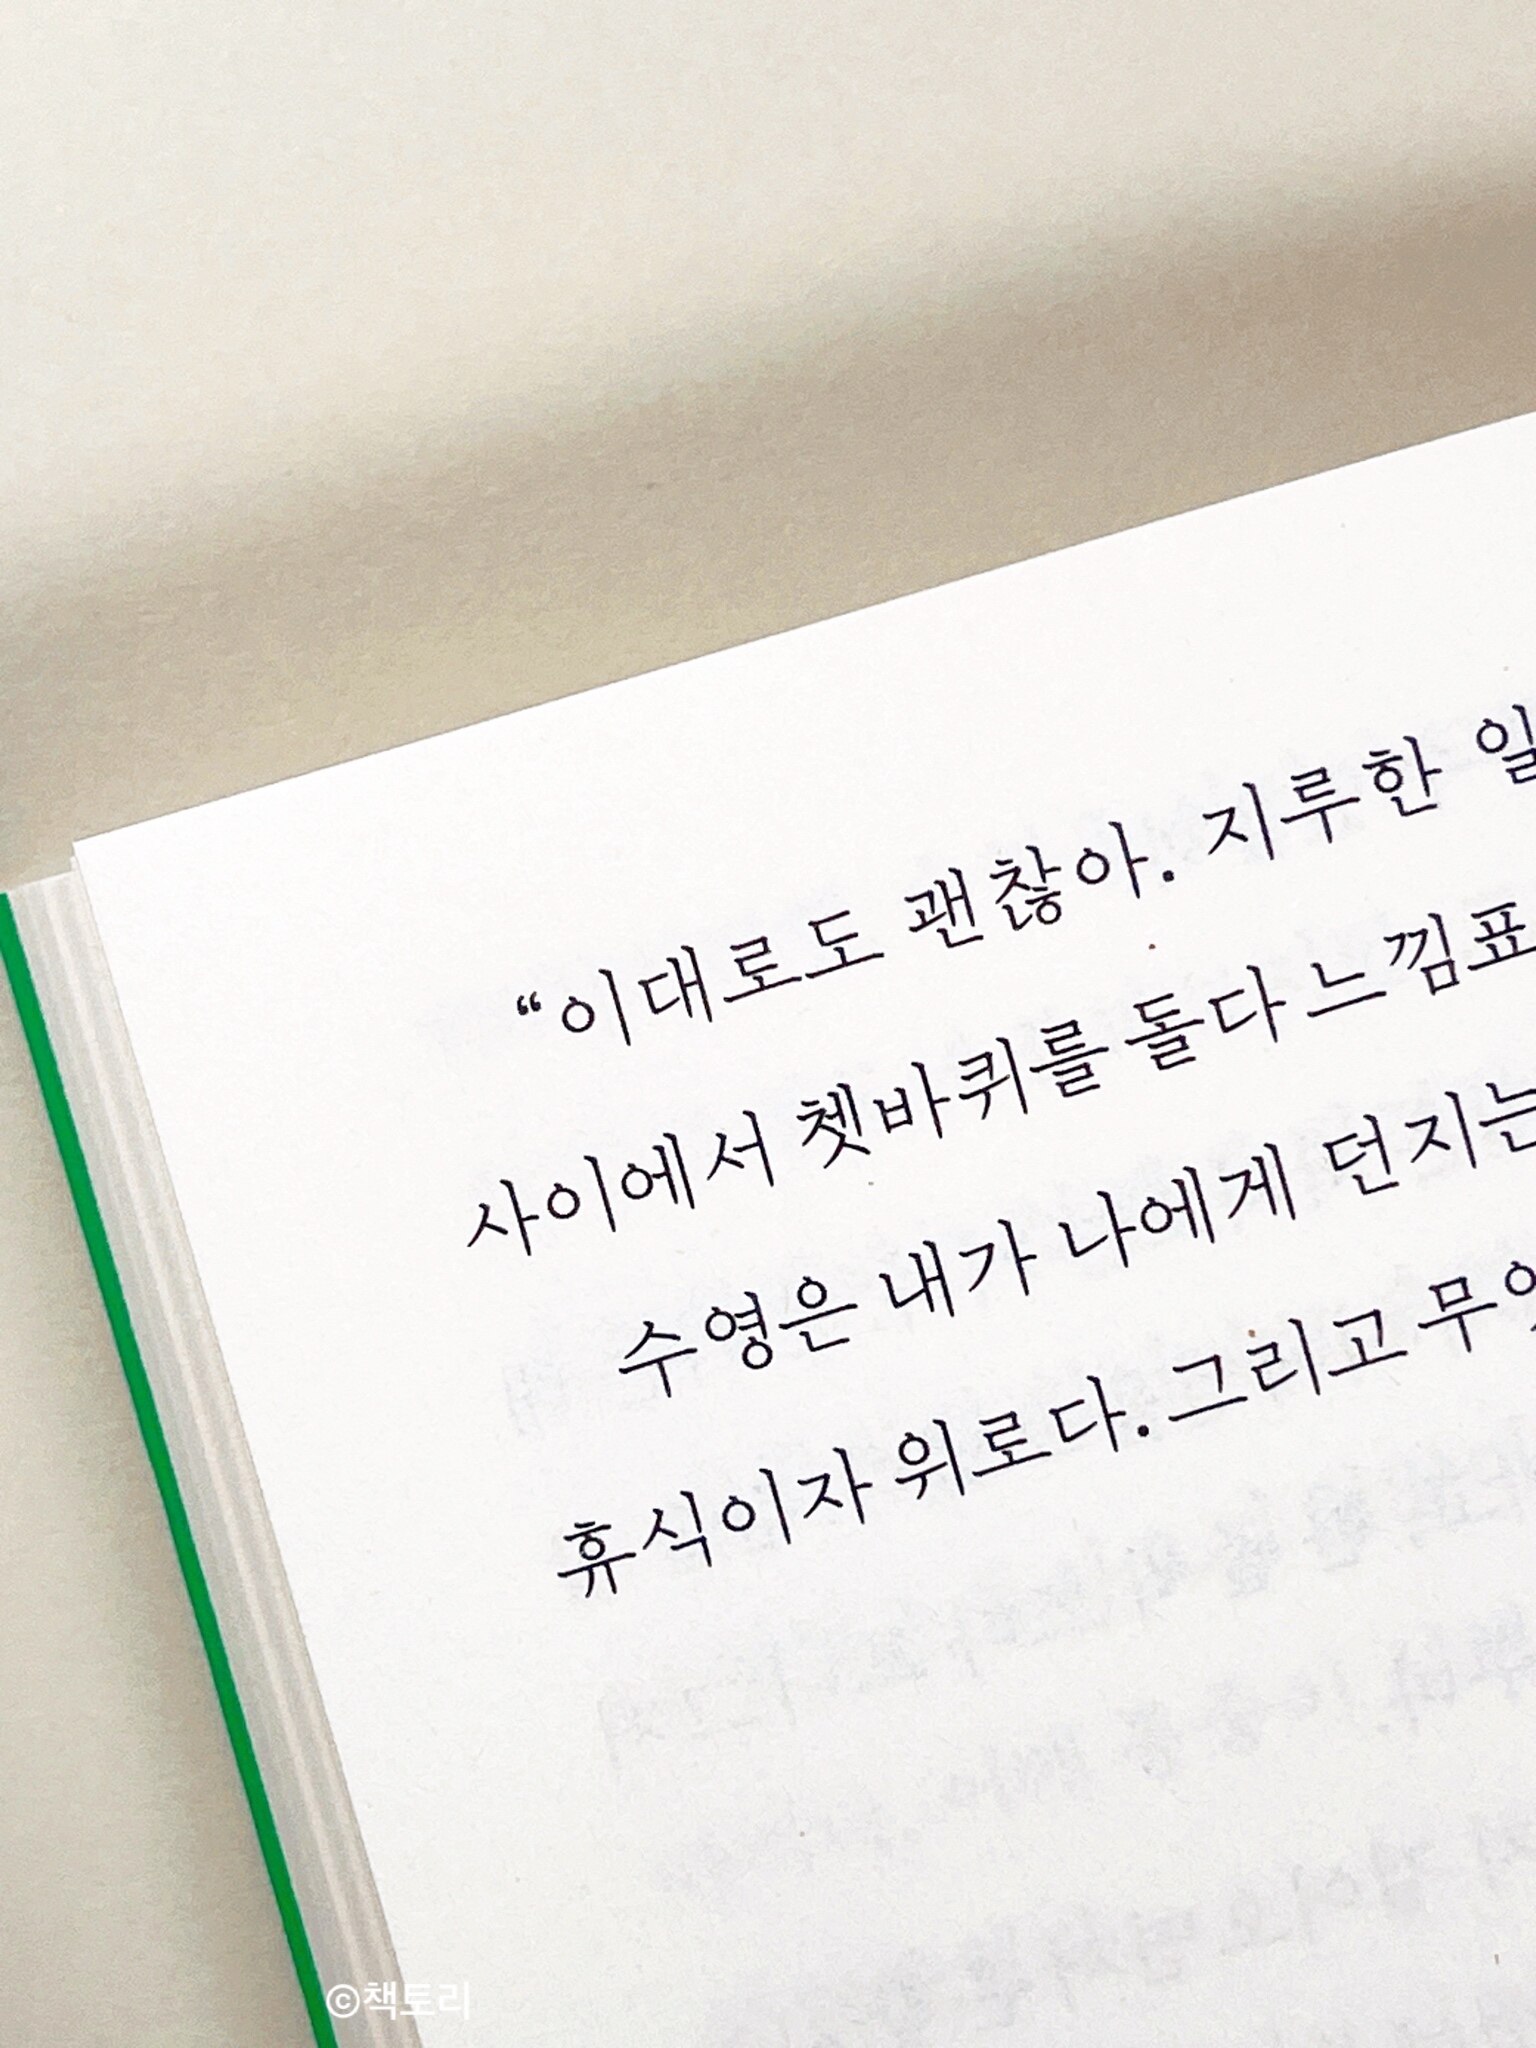 “이대로도 괜찮아. 지루한
사이에서 쳇바퀴를 돌다 느낌표
수영은 내가 나에게 던지는
휴식이자 위로다. 그리고
©책토리